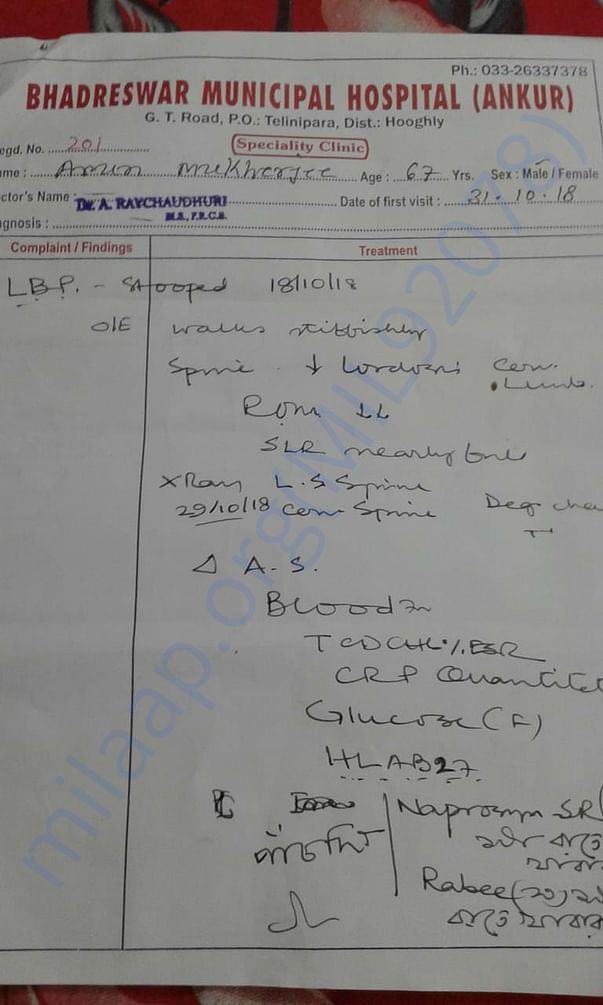 Ph.: 033-26337378
BHADRESWAR MUNICIPAL HOSPITAL (ANKUR)
G. T. Road, P.O.: Telinipara, Dist.: Hooghly
Speciality Clinic
egd. No. 201
me : Arun Mukherjee Age : 67 Yrs. Sex : Male / Female
ctor's Name : Dr. A. RAYCHAUDHURI Date of first visit : 31.10.18
M.S., F.R.C.S.
gnosis :
Complaint / Findings Treatment
L.B.P. - Stooped 18/10/18
O/E walks stiffishly
Spine ↓ Lordosis Cerv.
Lumb.
ROM ↓↓
SLR nearly
X Ray L.S Spine
29/10/18 Cerv Spine Deg cha
Δ A.S.
Blood
TCDCHb%ESR
CRP Quantitat
Glucose (F)
HLAB27
Naprosyn SR
Rabee (20)
milaap.org(MIL92078)